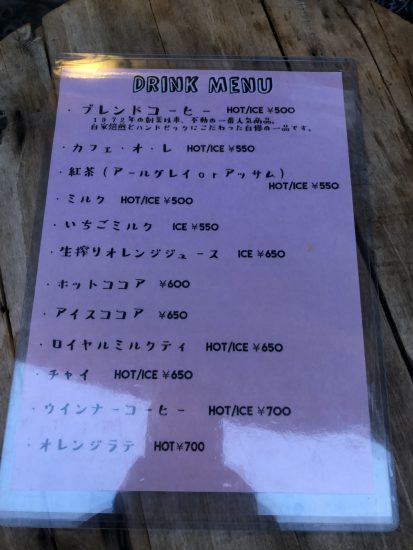 DRINK MENU
・ブレンドコーヒー HOT/ICE ¥500
1972年の創業以来、不動の一番人気商品。
自家焙煎とハンドピックにこだわった自慢の一品です。
・カフェ・オ・レ HOT/ICE ¥550
・紅茶(アールグレイorアッサム)
HOT/ICE ¥550
・ミルク HOT/ICE ¥500
・いちごミルク ICE ¥550
・生搾りオレンジジュース ICE ¥650
・ホットココア ¥600
・アイスココア ¥650
・ロイヤルミルクティ HOT/ICE ¥650
・チャイ HOT/ICE ¥650
・ウインナーコーヒー HOT/ICE ¥700
・オレンジラテ HOT¥700